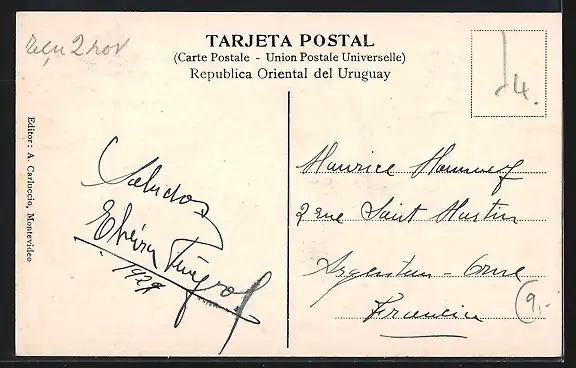 reçu 2 nov
TARJETA POSTAL
(Carte Postale - Union Postale Universelle)
Republica Oriental del Uruguay
4.
Editor: A. Carluccio, Montevideo
Saludos
Elvira
1929
Maurice
2 rue Saint Martin
Argentan - Orne
Francia
(9,-